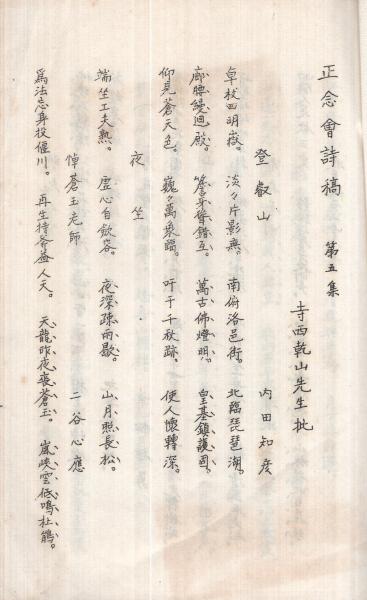 正念會詩稿　第五集
寺西乾山先生批
登叡山　内田知彦
卓拔四明嶽。淡々片影無。南俯洛邑街。北臨琵琶湖。
廊腰縵迴殿。簷牙聳錯互。萬古佛燈明。皇基鎮護固。
仰見蒼天色。巍々萬衆臨。吁于千秋跡。使人懷轉深。
夜坐
端坐工夫熟。虚心自斂容。夜深疎雨歇。山月照長松。
悼蒼玉老師　二谷心應
為法忘身投偃川。再生持呑益人天。天龍昨夜喪蒼玉。嵐峽雲低鳴杜鵑。